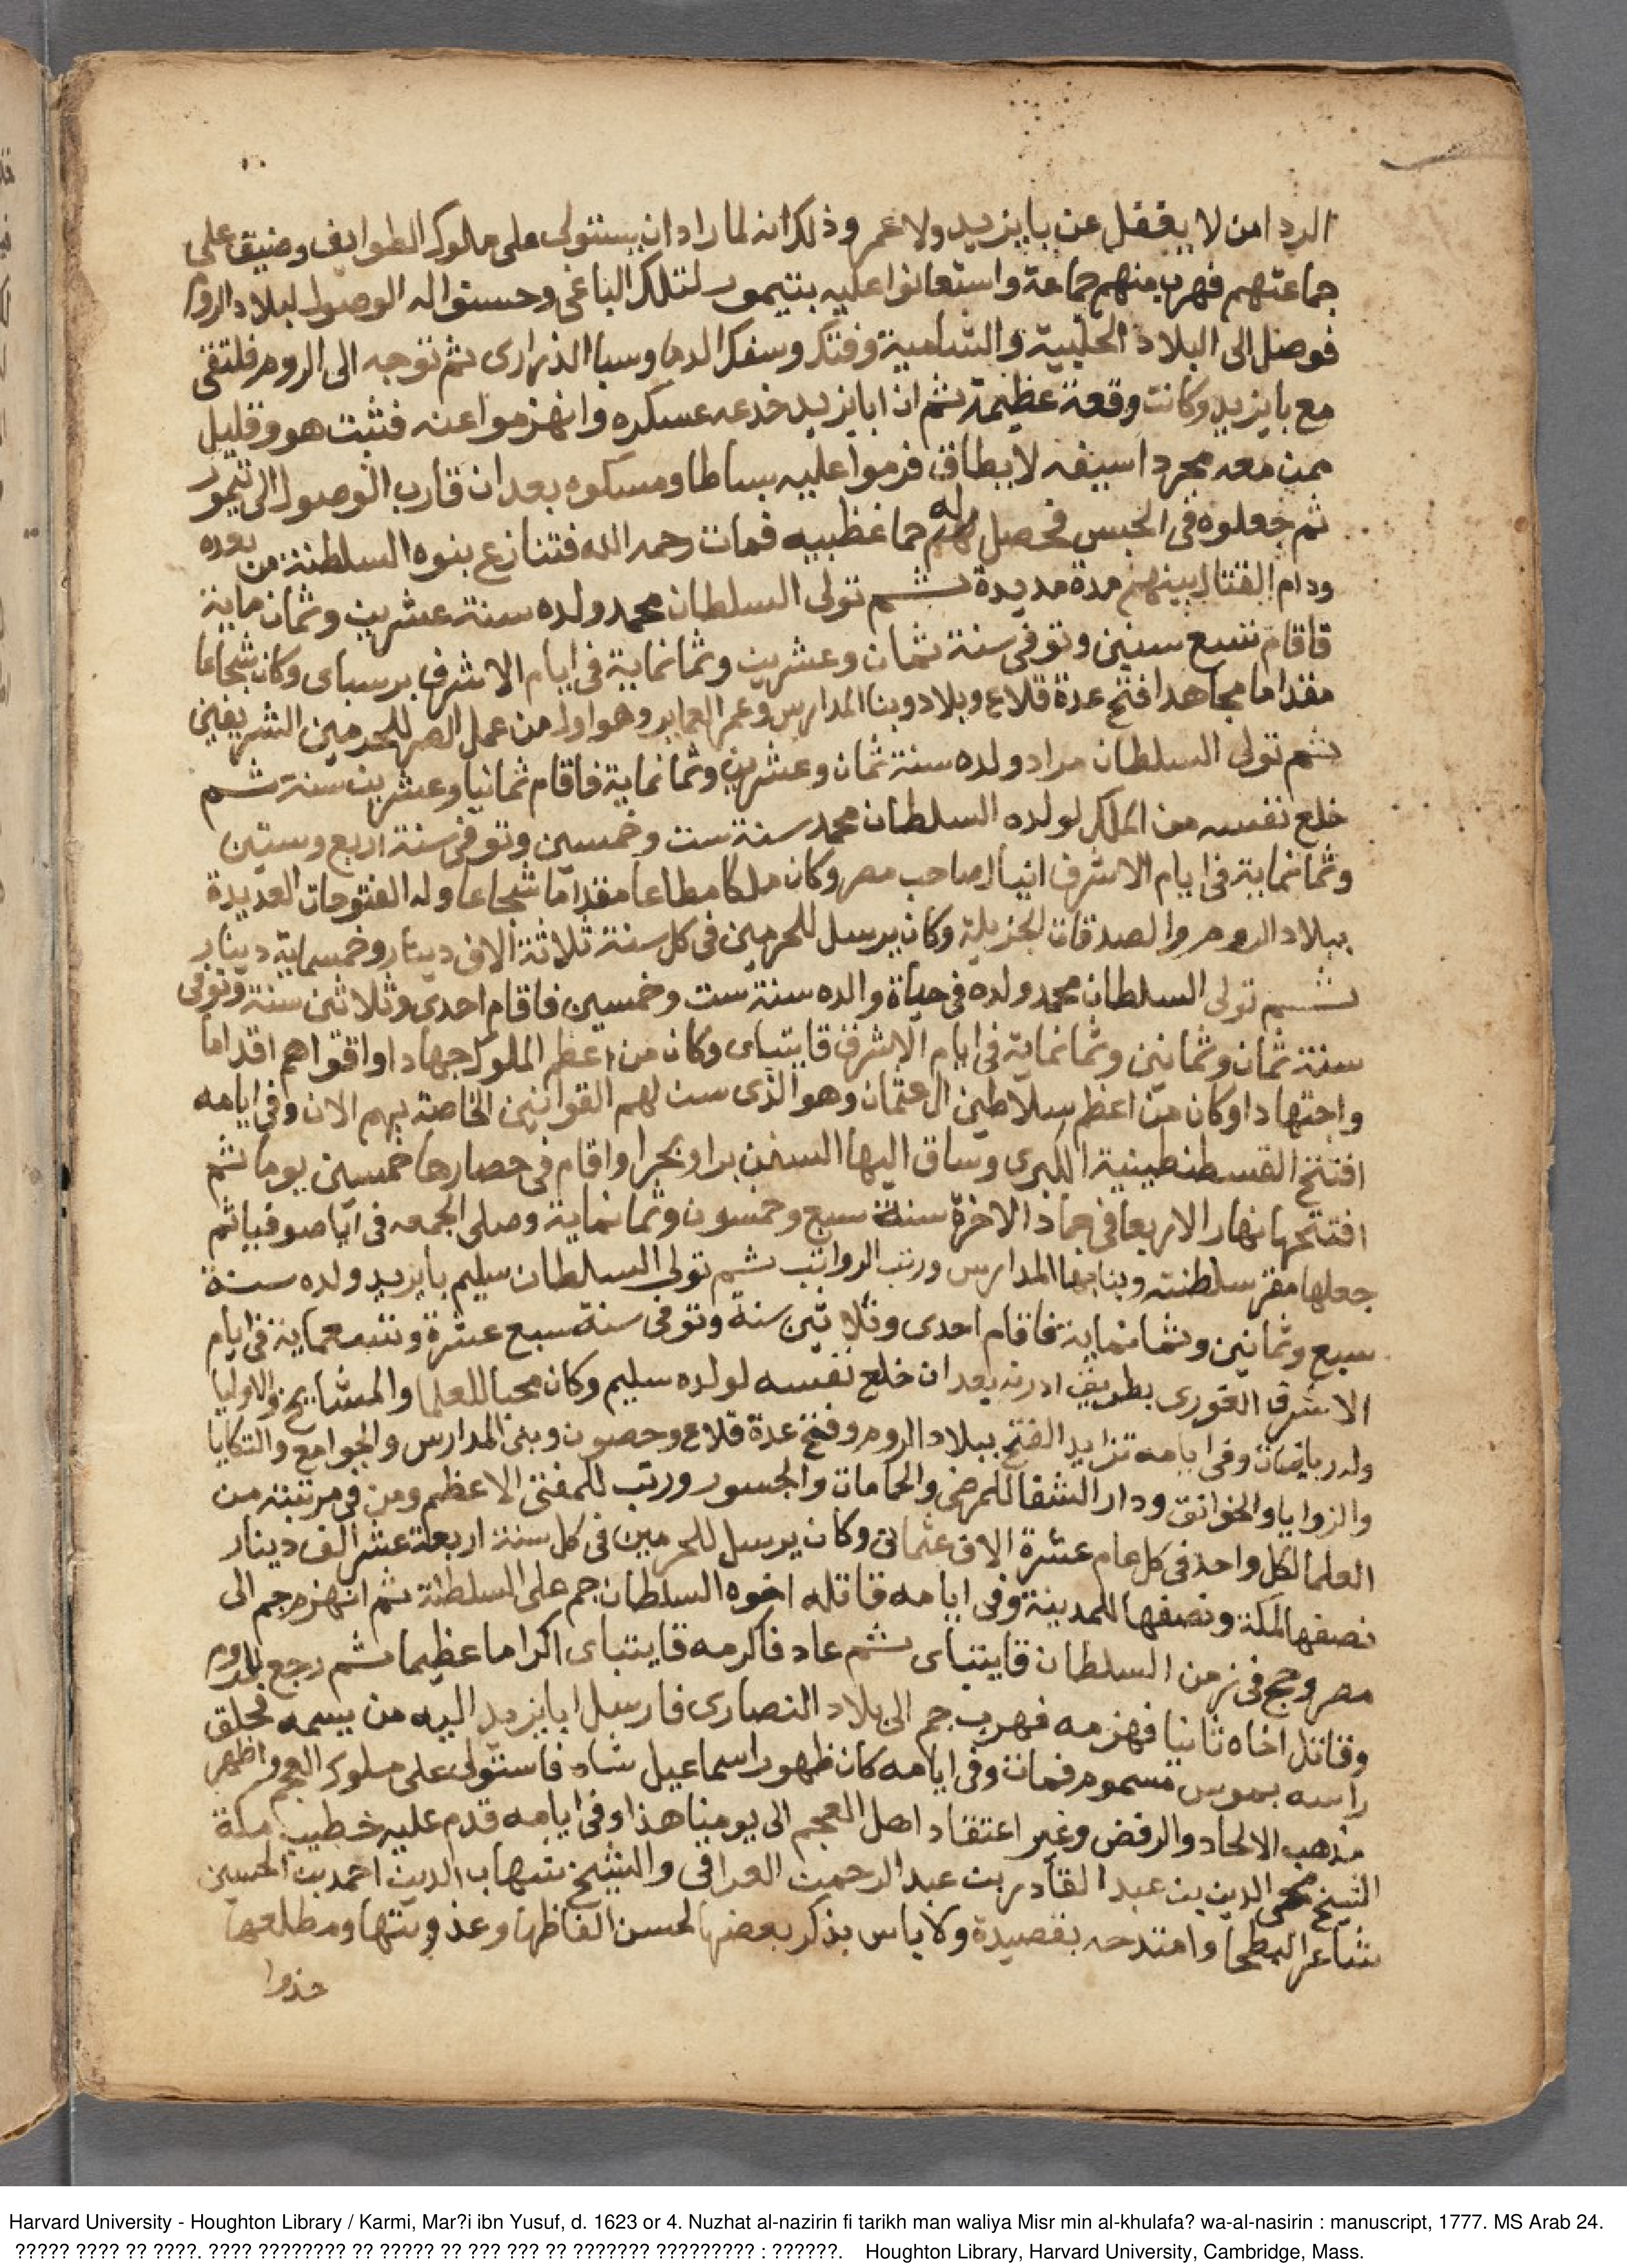 الردا من لا يغفل عن بايزيد ولا عمر وذلك انه لما راد ان يستولى على ملوك الطوايف وضيق على
جماعتهم فهرب منهم جماعة واستعانوا عليه بتيمور لنتلك الباغى وحسنوا له الوصول لبلاد الروم
فوصل الى البلاد الحلبية والشامية وفتك وسفك الدما وسبا الذرارى ثم توجه الى الروم فلتقى
مع بايزيد وكانت وقعة عظيمة ثم ان ابايزيد خدعه عسكره وانهزموا عنه فثبت هو وقليل
ممن معه مجردا سيفه لا يطاق فرموا عليه بساطا ومسكوه بعد ان قارب الوصول الى تيمور
ثم جعلوه فى الحبس فحصل له حما غظبيه فمات رحمه الله فتنازع بنوه السلطنة من بعده
ودام القتال بينهم مدة مديدة ثم تولى السلطان محمد ولده سنة عشرين وثمان ماية
فاقام تسع سنين وتوفى سنة ثمان وعشرين وثمانماية فى ايام الاشرف برسباى وكان شجاعا
مقداما مجاهدا افتح عدة قلاع وبلاد وبنا المدارس وعمر العماير وهو اول من عمل الصر للحرمين الشريفين
ثم تولى السلطان مراد ولده سنة ثمان وعشرين وثمانماية فاقام ثمانيا وعشرين سنة ثم
خلع نفسه من الملك لولده السلطان محمد سنة ست وخمسين وتوفى سنة اربع وستين
وثمانماية فى ايام الاشرف اينال صاحب مصر وكان ملكا مطاعا مقداما شجاعا وله الفتوحات العديدة
ببلاد الروم والصدقات الجزيلة وكان يرسل للحرمين فى كل سنة ثلاثة الاف دينار وخمسماية دينار
ثم تولى السلطان محمد ولده فى حياة والده سنة ست وخمسين فاقام احدى وثلاثين سنة وتوفى
سنة ثمان وثمانين وثمانماية فى ايام الاشرف قايتباى وكان من اعظم الملوك جهادا واقواهم اقداما
واجتهادا وكان من اعظم سلاطين ال عثمان وهو الذى سن لهم القوانين الخاصة بهم الان وفى ايامه
افتتح القسطنطينية الكبرى وساق اليها السفن برا وبحرا واقام فى حصارها خمسين يوما ثم
افتتحها نهار الاربعا فى جماد الاخرة سنة سبع وخمسون وثمانماية وصلى الجمعه فى آيا صوفيا ثم
جعلها مقر سلطنته وبنا بها المدارس ورتب الرواتب ثم تولى السلطان سليم بايزيد ولده سنة
سبع وثمانين وثمانماية فاقام احدى وثلاثين سنة وتوفى سنة سبع عشرة وتسعماية فى ايام
الاشرف الغورى بطريق ادرنه بعد ان خلع نفسه لولده سليم وكان محبا للعلما والمشايخ والاوليا
وله رياضات وفى ايامه تزايد الفتح ببلاد الروم وفتح عدة قلاع وحصون وبنى المدارس والجوامع والتكايا
والزوايا والخوانق ودار الشفا للمرضى والحمامات والجسور ورتب للمفتى الاعظم ومن فى مرتبته من
العلما لكل واحد فى كل عام عشرة الاف عثمانى وكان يرسل للحرمين فى كل سنة اربعة عشر الف دينار
نصفها لمكة ونصفها للمدينة وفى ايامه قاتله اخوه السلطان جم على السلطنة ثم انهزم جم الى
مصر وحج فى زمن السلطان قايتباى ثم عاد فاكرمه قايتباى اكراما عظيما ثم رجع للروم
وقاتل اخاه ثانيا فهزمه فهرب جم الى بلاد النصارى فارسل ابايزيد اليه من يسمه فحلق
راسه بموس مسموم فمات وفى ايامه كان ظهور اسماعيل شاه فاستولى على ملوك العجم واظهر
مذهب الالحاد والرفض وغير اعتقاد اهل العجم الى يومنا هذا وفى ايامه قدم عليه خطيب مكة
الشيخ محى الدين بن عبد القادر بن عبد الرحمن العراقى والشيخ شهاب الدين احمد بن الحسين
شاعر البطحا وامتدحه بقصيدة ولا باس بذكر بعضها لحسن الفاظها وعذوبتها ومطلعها
خذوا
Harvard University - Houghton Library / Karmi, Mar?i ibn Yusuf, d. 1623 or 4. Nuzhat al-nazirin fi tarikh man waliya Misr min al-khulafa? wa-al-nasirin : manuscript, 1777. MS Arab 24.
????? ???? ?? ????. ???? ???????? ?? ????? ?? ??? ??? ?? ??????? ????????? : ??????. Houghton Library, Harvard University, Cambridge, Mass.